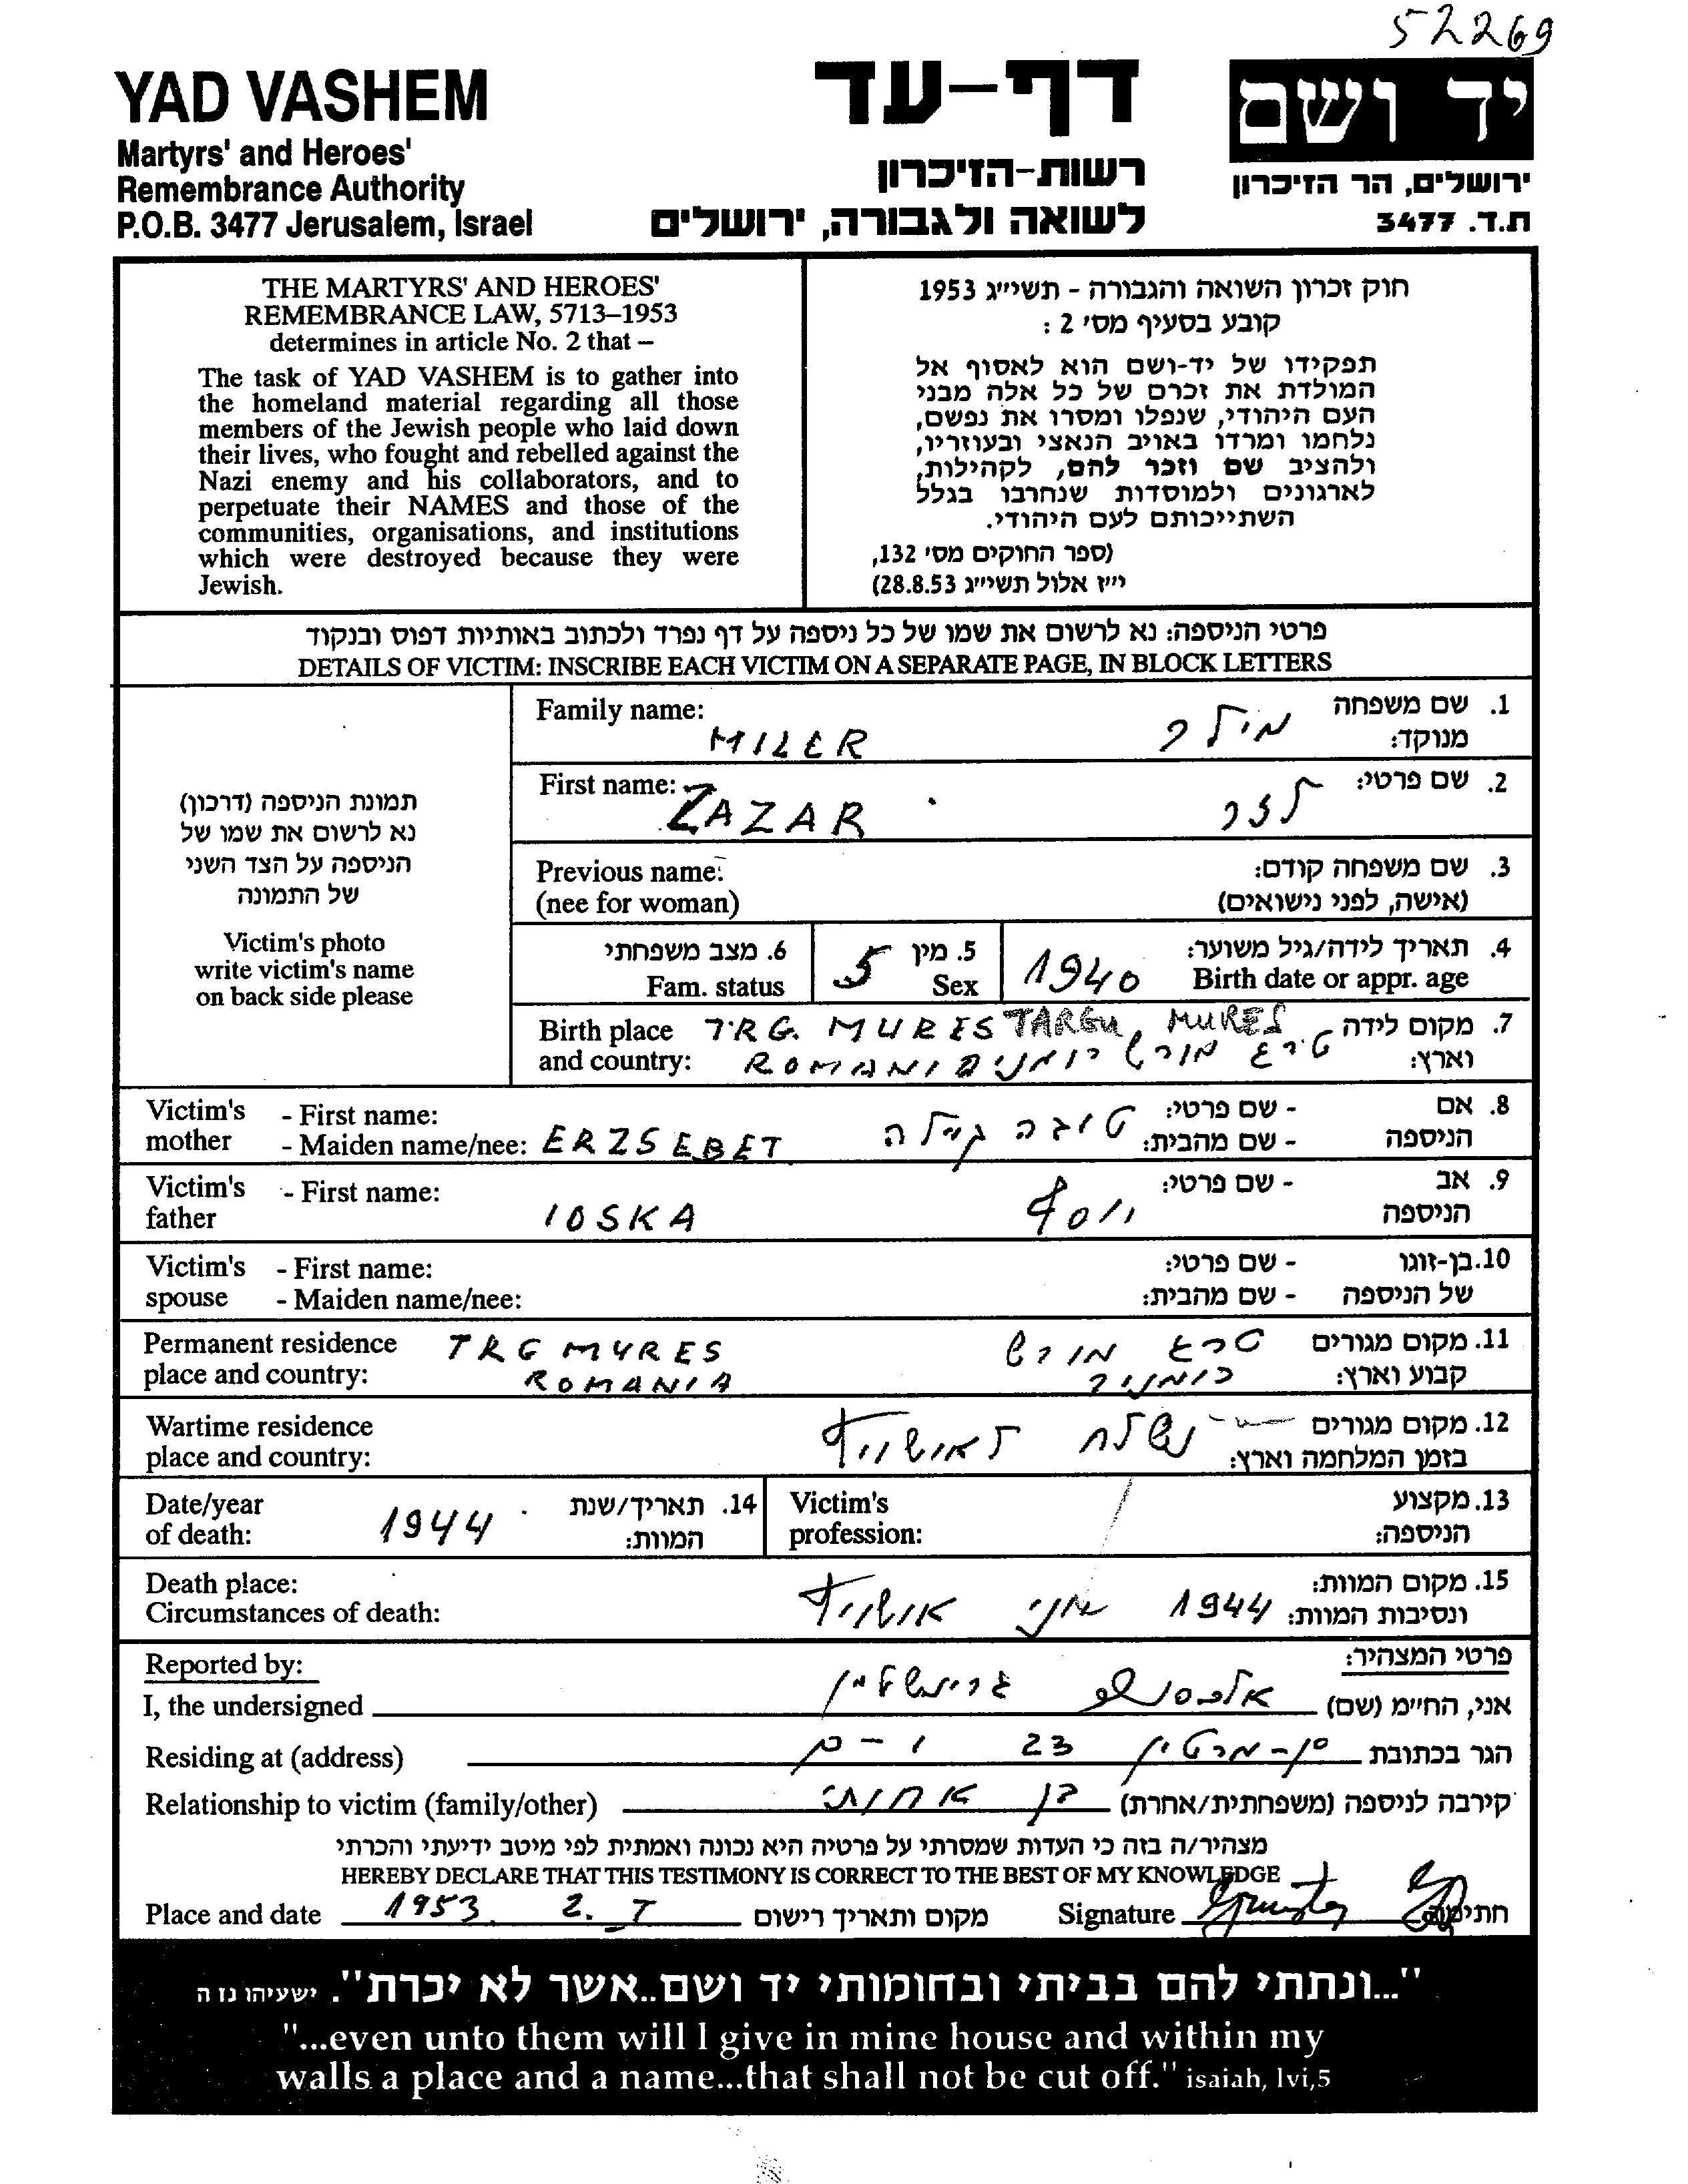 52269
YAD VASHEM
Martyrs' and Heroes'
Remembrance Authority
P.O.B. 3477 Jerusalem, Israel
דף-עד
רשות-הזיכרון
לשואה ולגבורה, ירושלים
יד ושם
ירושלים, הר הזיכרון
ת.ד. 3477
THE MARTYRS' AND HEROES'
REMEMBRANCE LAW, 5713–1953
determines in article No. 2 that –
The task of YAD VASHEM is to gather into
the homeland material regarding all those
members of the Jewish people who laid down
their lives, who fought and rebelled against the
Nazi enemy and his collaborators, and to
perpetuate their NAMES and those of the
communities, organisations, and institutions
which were destroyed because they were
Jewish.
חוק זכרון השואה והגבורה - תשי״ג 1953
קובע בסעיף מס׳ 2 :
תפקידו של יד-ושם הוא לאסוף אל
המולדת את זכרם של כל אלה מבני
העם היהודי, שנפלו ומסרו את נפשם,
נלחמו ומרדו באויב הנאצי ובעוזריו,
ולהציב שם וזכר להם, לקהילות,
לארגונים ולמוסדות שנחרבו בגלל
השתייכותם לעם היהודי.
(ספר החוקים מס׳ 132,
י״ז אלול תשי״ג 28.8.53)
פרטי הניספה: נא לרשום את שמו של כל ניספה על דף נפרד ולכתוב באותיות דפוס ובנקוד
DETAILS OF VICTIM: INSCRIBE EACH VICTIM ON A SEPARATE PAGE, IN BLOCK LETTERS
תמונת הניספה (דרכון)
נא לרשום את שמו של
הניספה על הצד השני
של התמונה
Victim's photo
write victim's name
on back side please
Family name: MILER
1. שם משפחה מנוקד: מילר
First name: LAZAR
2. שם פרטי: לזר
Previous name:
(nee for woman)
3. שם משפחה קודם:
(אישה, לפני נישואים)
4. תאריך לידה/גיל משוער:
Birth date or appr. age 1940
5. מין
Sex
6. מצב משפחתי
Fam. status
Birth place TRG. MURES TARGU MURES
and country: ROMANIA
7. מקום לידה
וארץ: טרג מורש רומניה
Victim's mother
- First name:
- Maiden name/nee: ERZSEBET
8. אם הניספה
- שם פרטי:
- שם מהבית: טובה
Victim's father
- First name: IOSKA
9. אב הניספה
- שם פרטי: יוסף
Victim's spouse
- First name:
- Maiden name/nee:
10. בן-זוגו של הניספה
- שם פרטי:
- שם מהבית:
Permanent residence TRG MURES
place and country: ROMANIA
11. מקום מגורים טרג מורש
קבוע וארץ: רומניה
Wartime residence
place and country:
12. מקום מגורים
בזמן המלחמה וארץ: נשלח לאושויץ
Victim's
profession:
13. מקצוע
הניספה:
Date/year
of death: 1944
14. תאריך/שנת
המוות:
Death place:
Circumstances of death:
15. מקום המוות:
ונסיבות המוות: 1944 אושויץ
Reported by:
פרטי המצהיר:
I, the undersigned
אני, החי״מ (שם)
Residing at (address)
הגר בכתובת סן-מרטין 23
Relationship to victim (family/other)
קירבה לניספה (משפחתית/אחרת) בן אחותי
מצהיר/ה בזה כי העדות שמסרתי על פרטיה היא נכונה ואמתית לפי מיטב ידיעתי והכרתי
HEREBY DECLARE THAT THIS TESTIMONY IS CORRECT TO THE BEST OF MY KNOWLEDGE
Place and date 1953. 2. מקום ותאריך רישום
Signature חתימה
"...ונתתי להם בביתי ובחומותי יד ושם..אשר לא יכרת". ישעיהו נז ה
"...even unto them will I give in mine house and within my
walls a place and a name...that shall not be cut off." isaiah, lvi,5